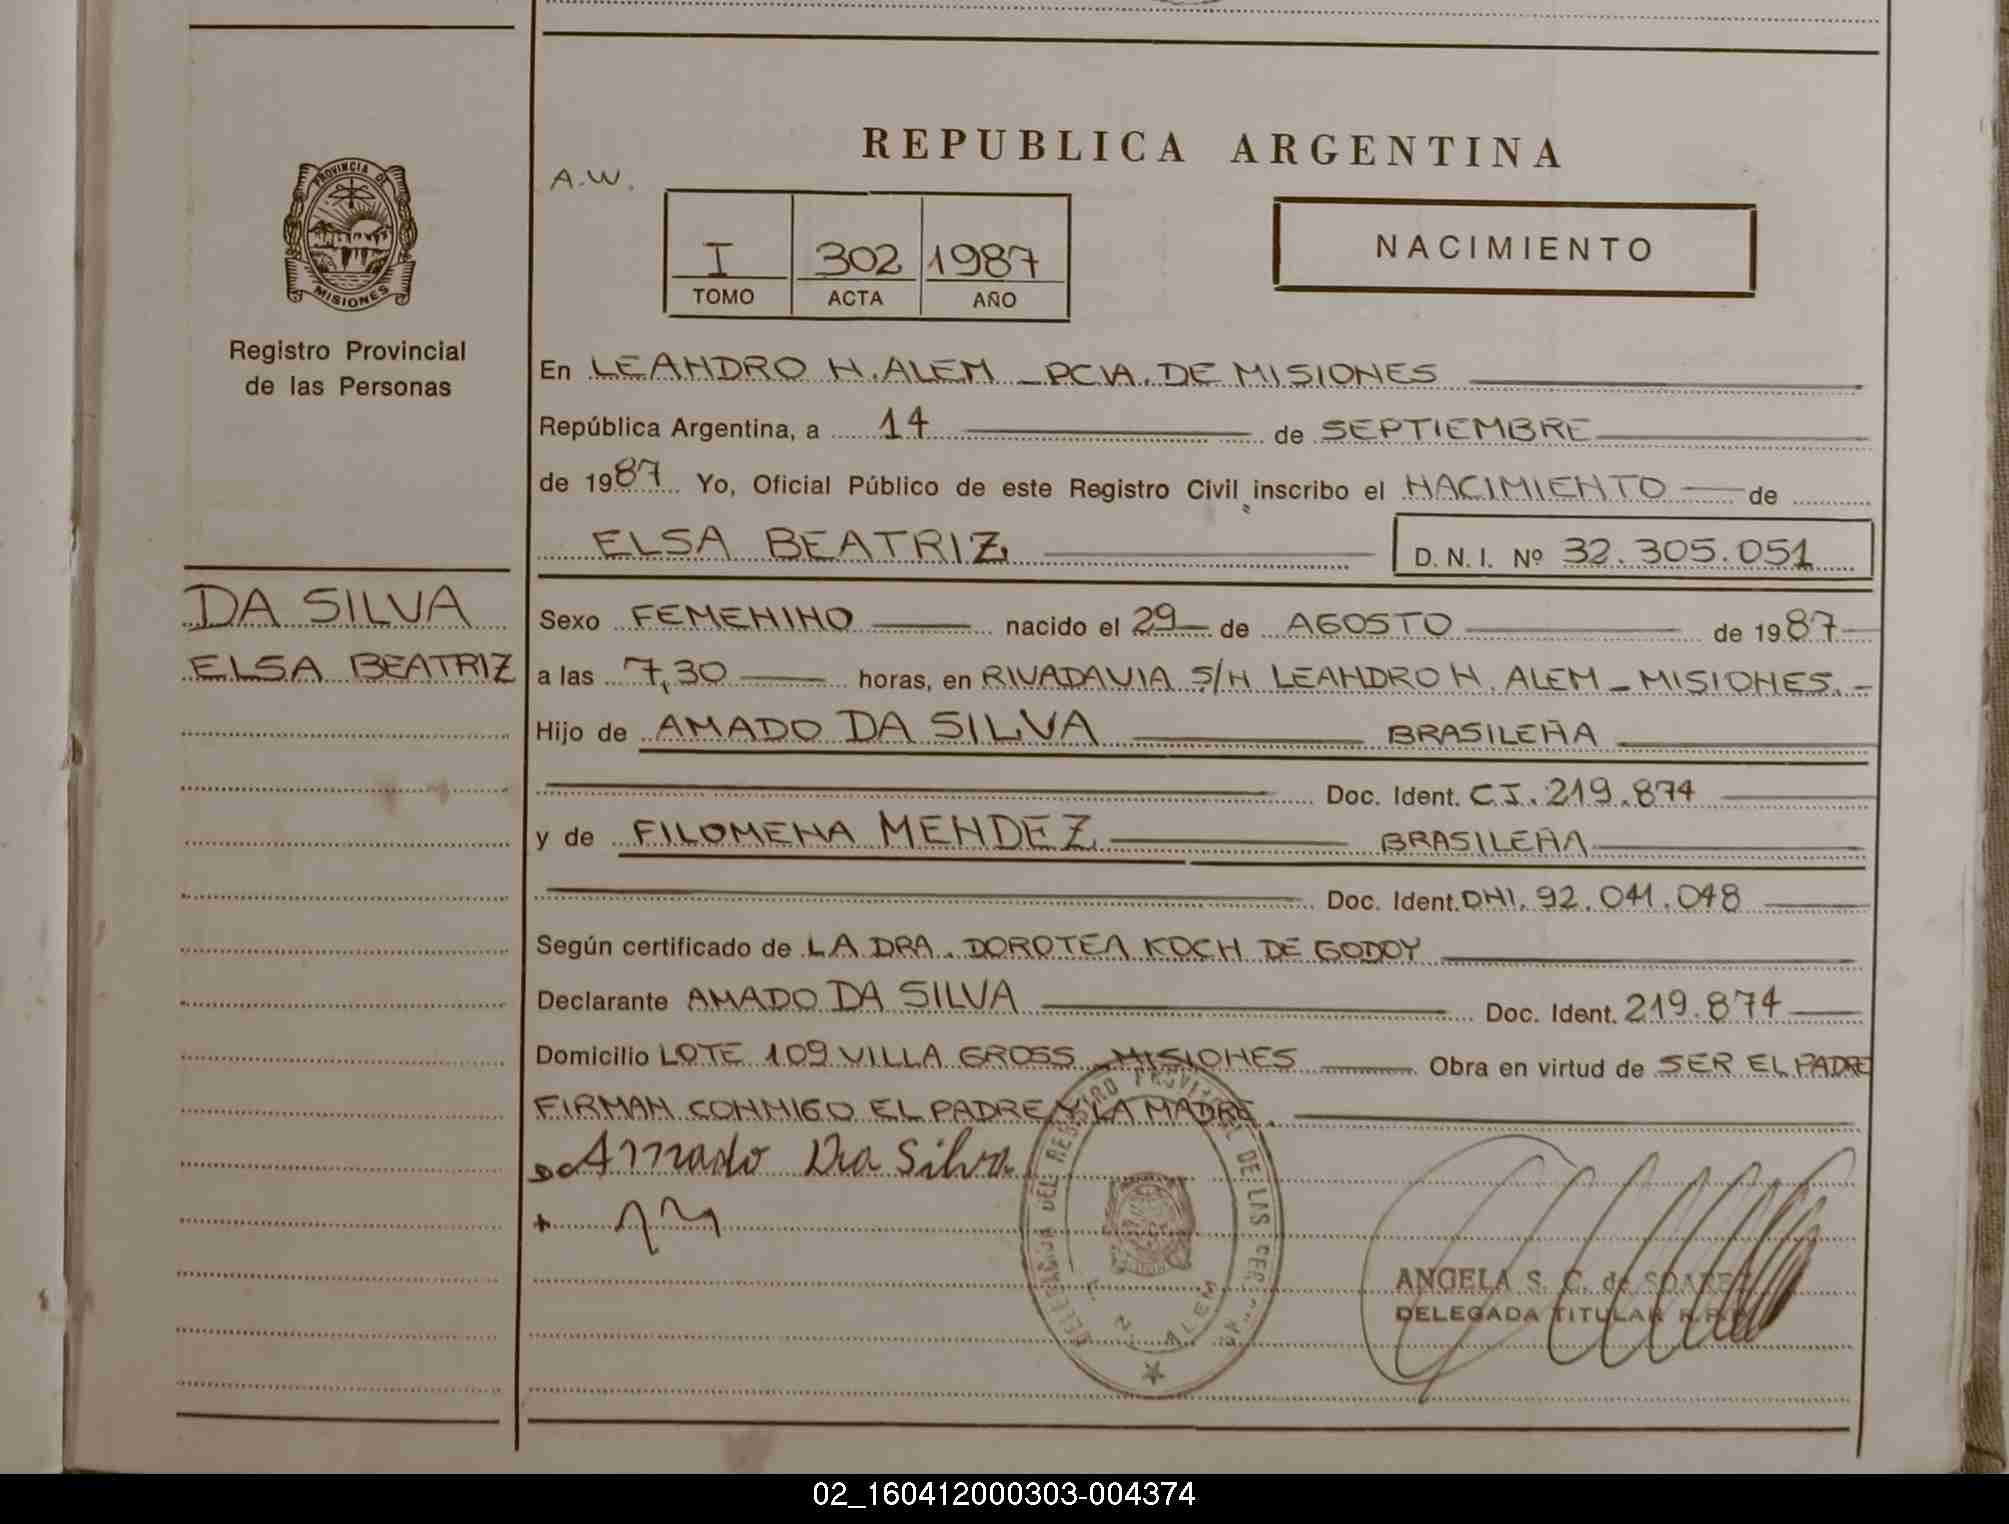 REPUBLICA ARGENTINA
A.W.
PROVINCIA DE
MISIONES
I 302 1987
TOMO ACTA AÑO
NACIMIENTO
Registro Provincial
de las Personas
En LEANDRO N. ALEM - PCIA. DE MISIONES
República Argentina, a 14 de SEPTIEMBRE
de 1987 Yo, Oficial Público de este Registro Civil inscribo el NACIMIENTO de
ELSA BEATRIZ D. N. I. Nº 32.305.051
DA SILVA
ELSA BEATRIZ
Sexo FEMENINO nacido el 29 de AGOSTO de 1987
a las 7,30 horas, en RIVADAVIA S/N LEANDRO N. ALEM - MISIONES. -
Hijo de AMADO DA SILVA BRASILEÑA
Doc. Ident. C.I. 219.874
y de FILOMENA MENDEZ BRASILEÑA
Doc. Ident. DNI. 92.041.048
Según certificado de LA DRA. DOROTEA KOCH DE GODOY
Declarante AMADO DA SILVA Doc. Ident. 219.874
Domicilio LOTE 109 VILLA GROSS - MISIONES Obra en virtud de SER EL PADRE
FIRMAN CONMIGO EL PADRE Y LA MADRE.
Amado Da Silva
DEL REGISTRO PROVINCIAL DE LAS
N. ALEM
ANGELA S. C. de SOAREZ
DELEGADA TITULAR R.P.P.
02_160412000303-004374